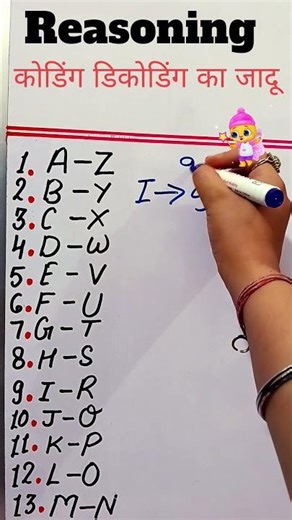 Reasoning
कोडिंग डिकोडिंग का जादू
1. A-Z
2. B-Y
3. C-X
4. D-W
5. E-V
6. F-U
7. G-T
8. H-S
9. I-R
10. J-Q
11. K-P
12. L-O
13. M-N
9
I→